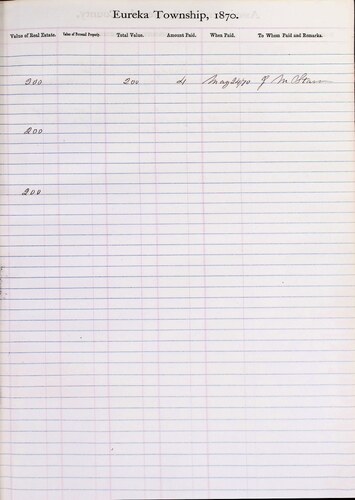 Eureka Township, 1870.
Value of Real Estate. Value of Personal Property. Total Value. Amount Paid. When Paid. To Whom Paid and Remarks.
200 200 4 May 24/70 J M
200
200